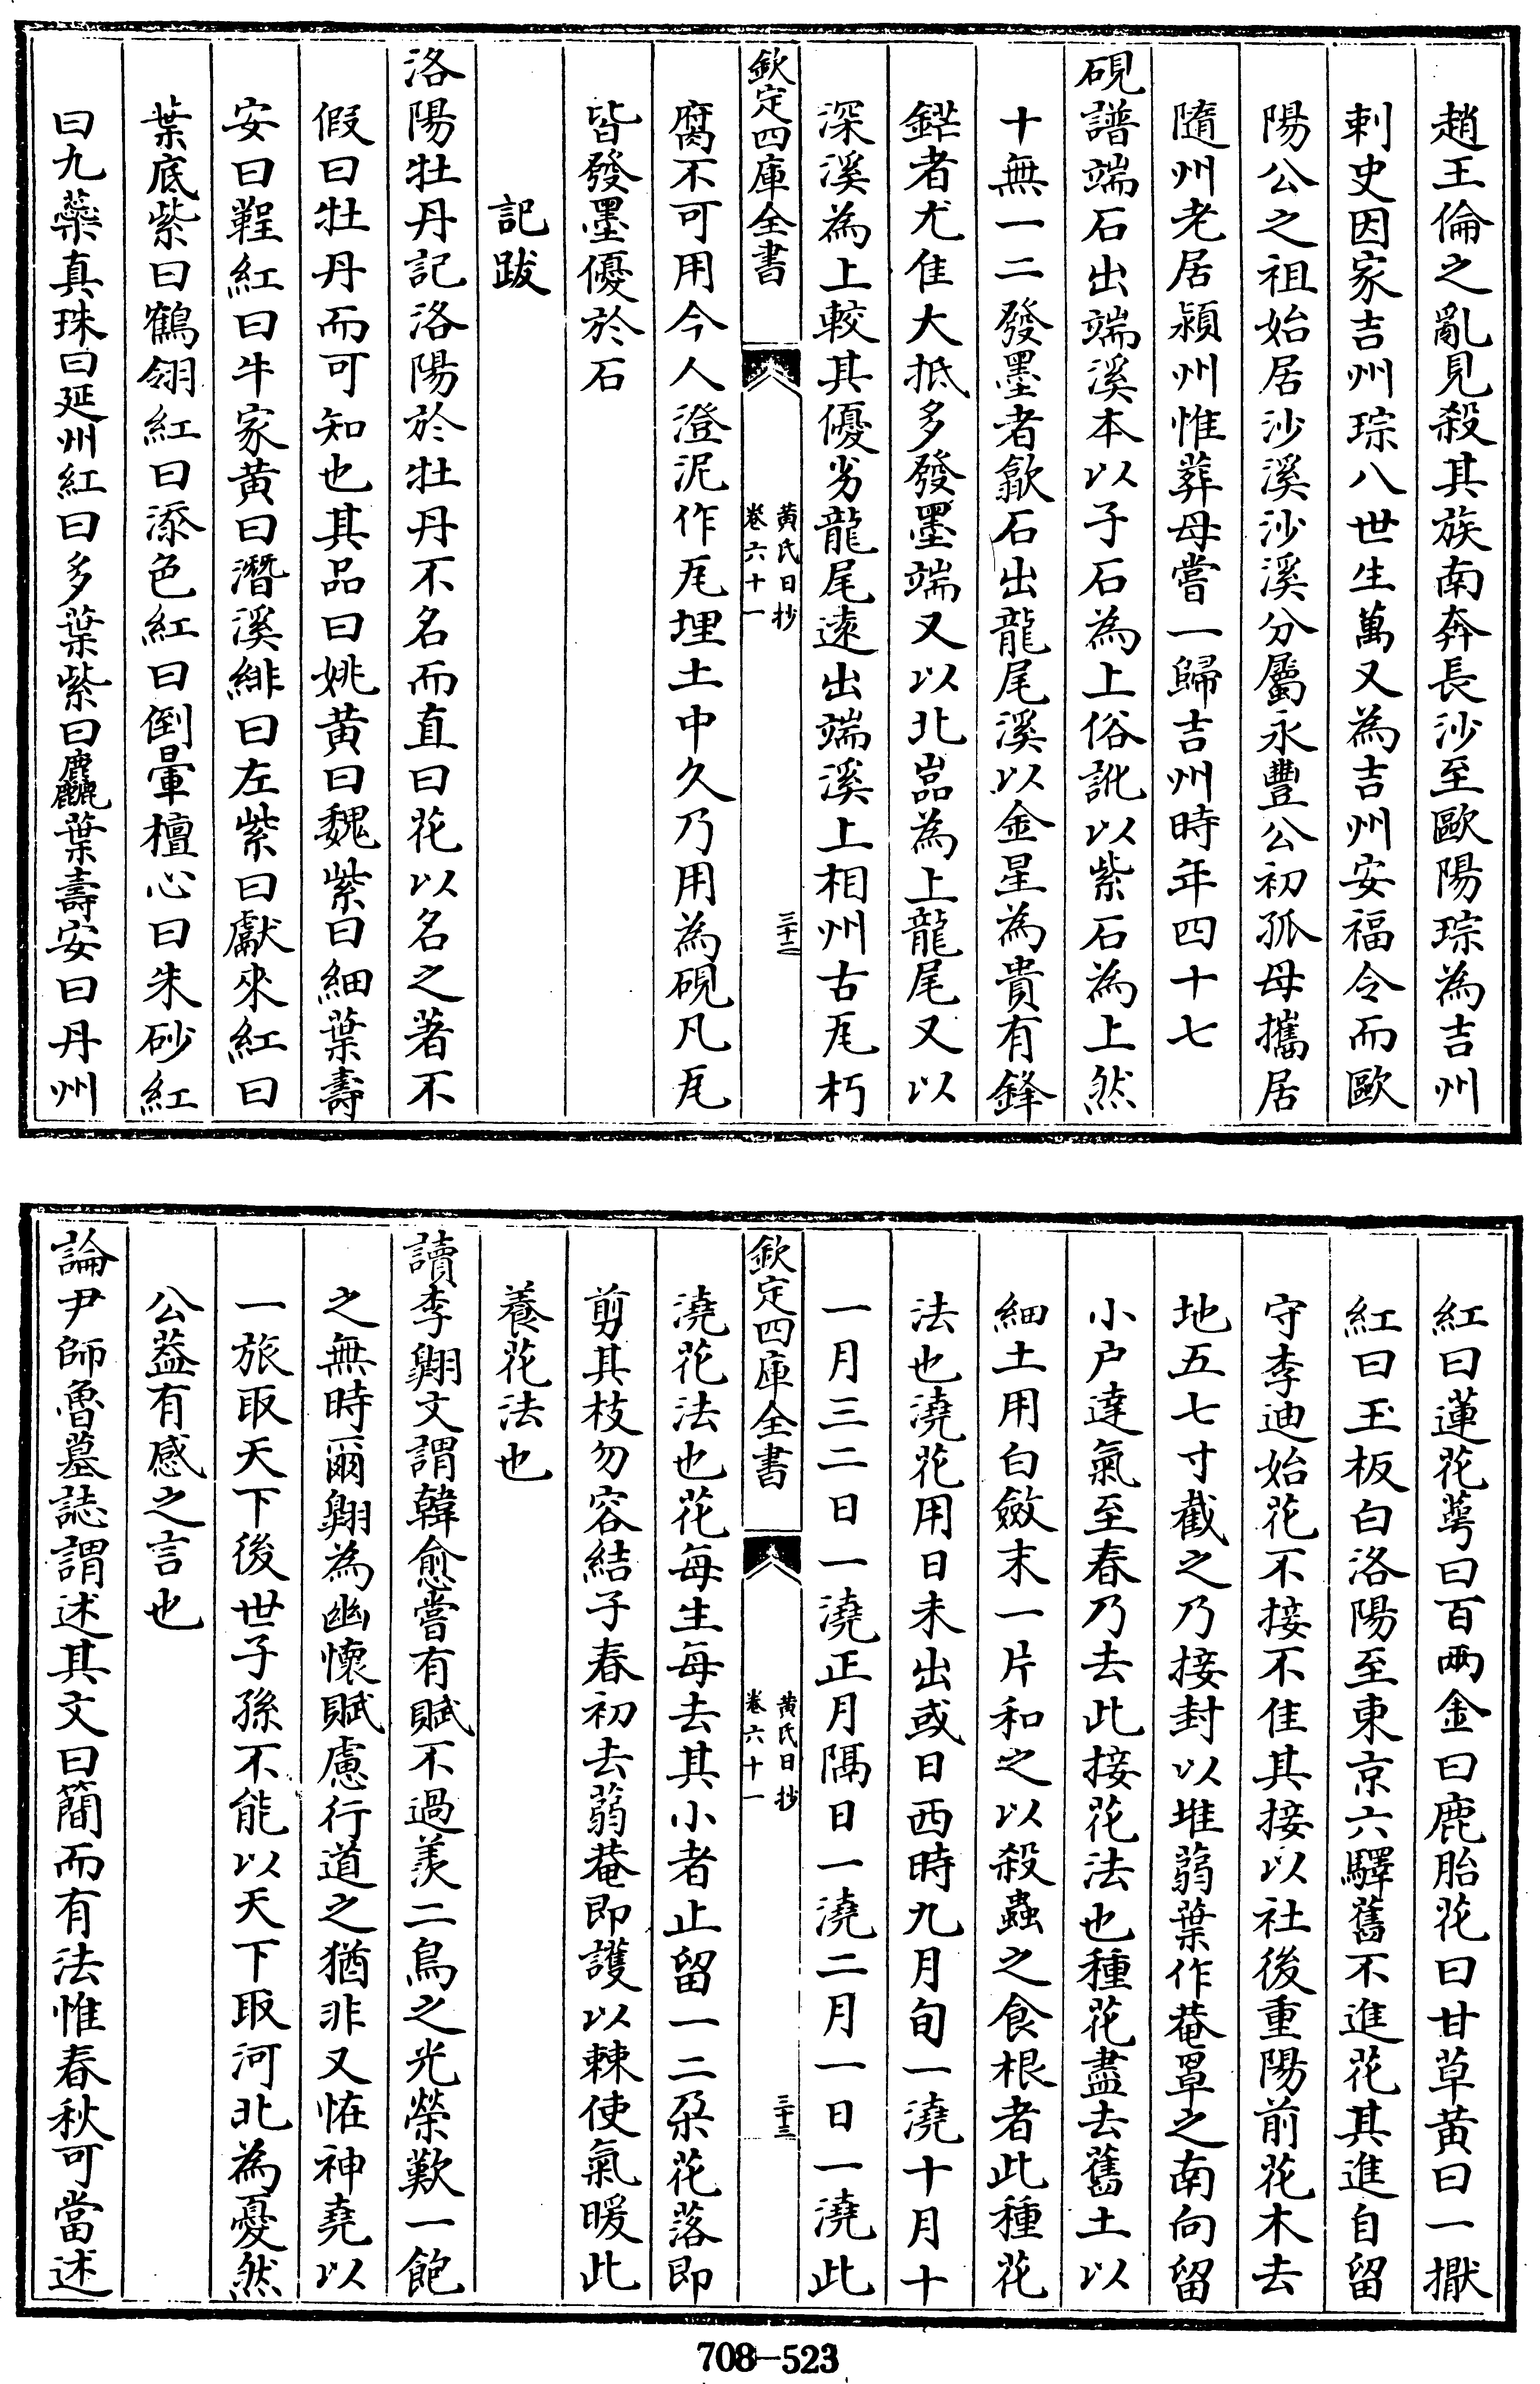 趙王倫之亂見殺其族南奔長沙至歐陽琮為吉州
刺史因家吉州琮八世生萬又為吉州安福令而歐
陽公之祖始居沙溪沙溪分屬永豐公初孤母攜居
隨州老居潁州惟葬母嘗一歸吉州時年四十七
硯譜端石出端溪本以子石為上俗訛以紫石為上然
十無一二發墨者歙石出龍尾溪以金星為貴有鋒
鋩者尤佳大抵多發墨端又以北嵓為上龍尾又以
深溪為上較其優劣龍尾遠出端溪上相州古瓦朽
欽定四庫全書
黃氏日抄
卷六十一
三十二
腐不可用今人澄泥作瓦埋土中久乃用為硯凡瓦
皆發墨優於石
記跋
洛陽牡丹記洛陽於牡丹不名而直曰花以名之著不
假曰牡丹而可知也其品曰姚黃曰魏紫曰細葉壽
安曰鞓紅曰牛家黃曰潛溪緋曰左紫曰獻來紅曰
葉底紫曰鶴翎紅曰添色紅曰倒暈檀心曰朱砂紅
曰九蘂真珠曰延州紅曰多葉紫曰麤葉壽安曰丹州
紅曰蓮花萼曰百兩金曰鹿胎花曰甘草黃曰一擫
紅曰玉板白洛陽至東京六驛舊不進花其進自留
守李迪始花不接不佳其接以社後重陽前花木去
地五七寸截之乃接封以堆蒻葉作菴罩之南向留
小户達氣至春乃去此接花法也種花盡去舊土以
細土用白斂末一片和之以殺蟲之食根者此種花
法也澆花用日未出或日西時九月旬一澆十月十
一月三二日一澆正月隔日一澆二月一日一澆此
欽定四庫全書
黃氏日抄
卷六十一
三十三
澆花法也花每生每去其小者止留一二朶花落即
剪其枝勿容結子春初去蒻菴即護以棘使氣暖此
養花法也
讀李翺文謂韓愈嘗有賦不過羡二鳥之光榮歎一飽
之無時爾翺為幽懷賦慮行道之猶非又怪神堯以
一旅取天下後世子孫不能以天下取河北為憂然
公葢有感之言也
論尹師魯墓誌謂述其文曰簡而有法惟春秋可當述
708-523